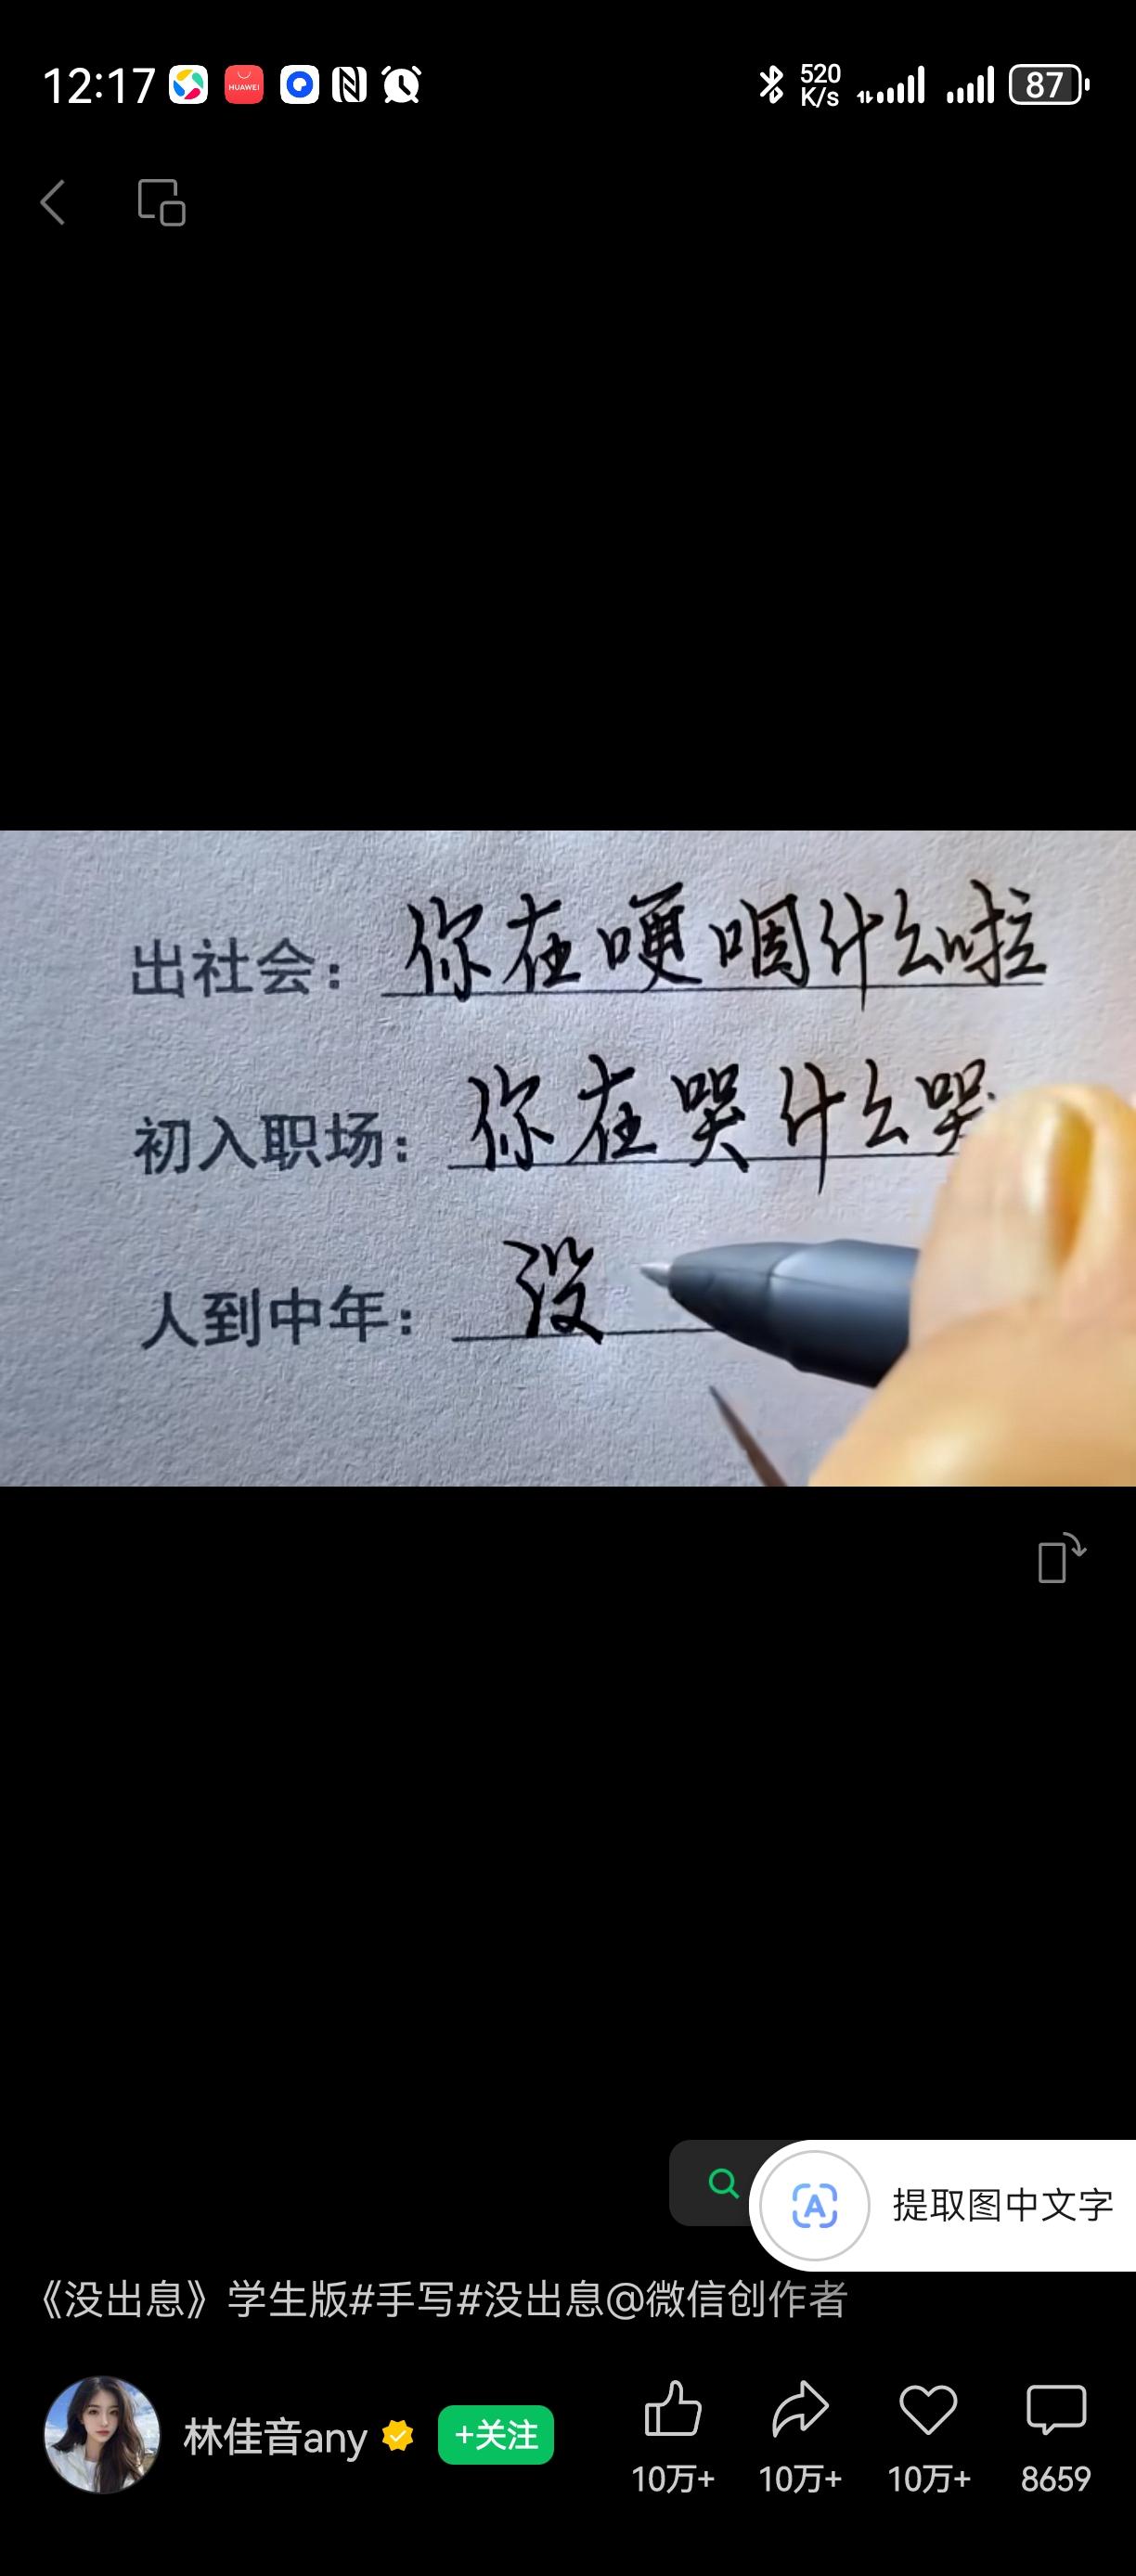 12:17
HUAWEI
520 K/s
87
出社会：你在哽咽什么啦
初入职场：你在哭什么哭
人到中年：没
提取图中文字
《没出息》学生版#手写#没出息@微信创作者
林佳音any +关注
10万+ 10万+ 10万+ 8659